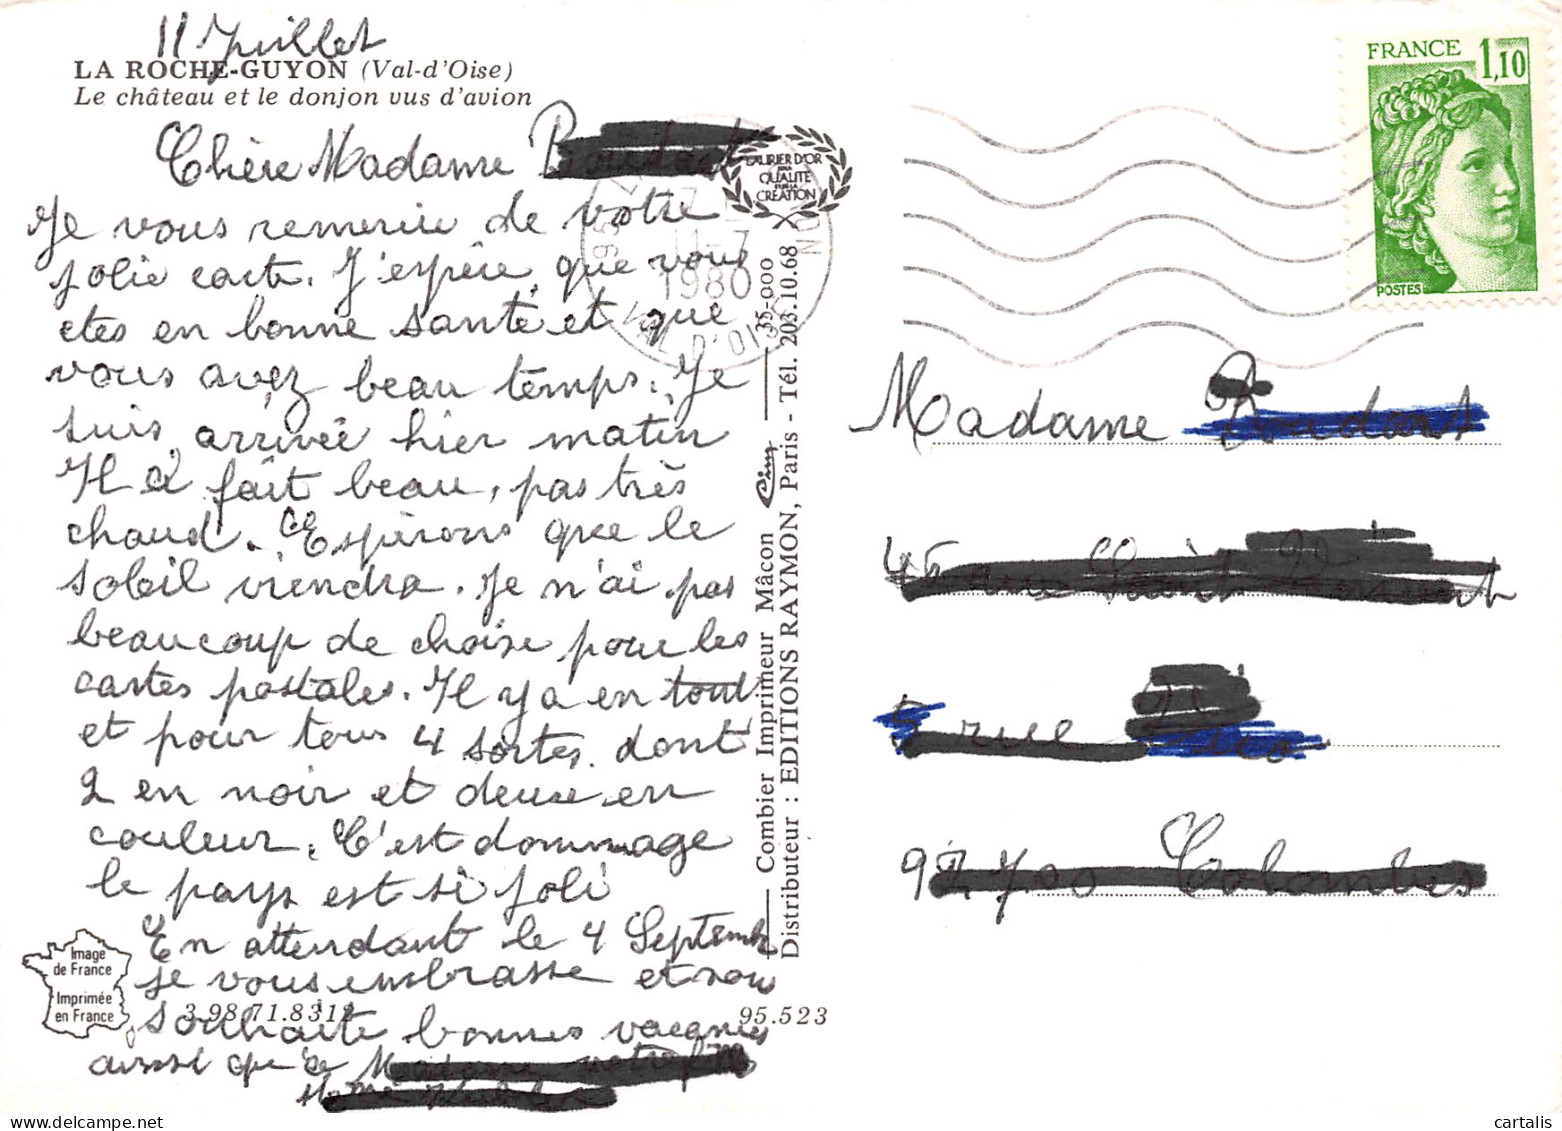 11 Juillet
LA ROCHE-GUYON (Val-d'Oise)
Le château et le donjon vus d'avion
Chère Madame
Je vous remercie de votre
jolie carte. J'espère que vous
etes en bonne santé et que
vous avez beau temps. Je
suis arrivée hier matin
Il a fait beau, pas très
chaud. Espérons que le
soleil viendra. Je n'ai pas
beaucoup de choise pour les
cartes postales. Il y a en tout
et pour tous 4 sortes dont
2 en noir et deux en
couleur. C'est dommage
le pays est si joli
En attendant le 4 Septembre
je vous embrasse et vous
souhaite bonnes vacances
aussi qu'à
Image
de France
Imprimée
en France
3.98.71.8312
95.523
LAURIER D'OR
DE LA
QUALITÉ
ET DE LA
CRÉATION
11-7
1980
VAL D'OISE
Combier Imprimeur Mâcon Cim 35.000
Distributeur : EDITIONS RAYMON, Paris - Tél. 203.10.68
FRANCE
1,10
POSTES
Madame
rue
cartalis